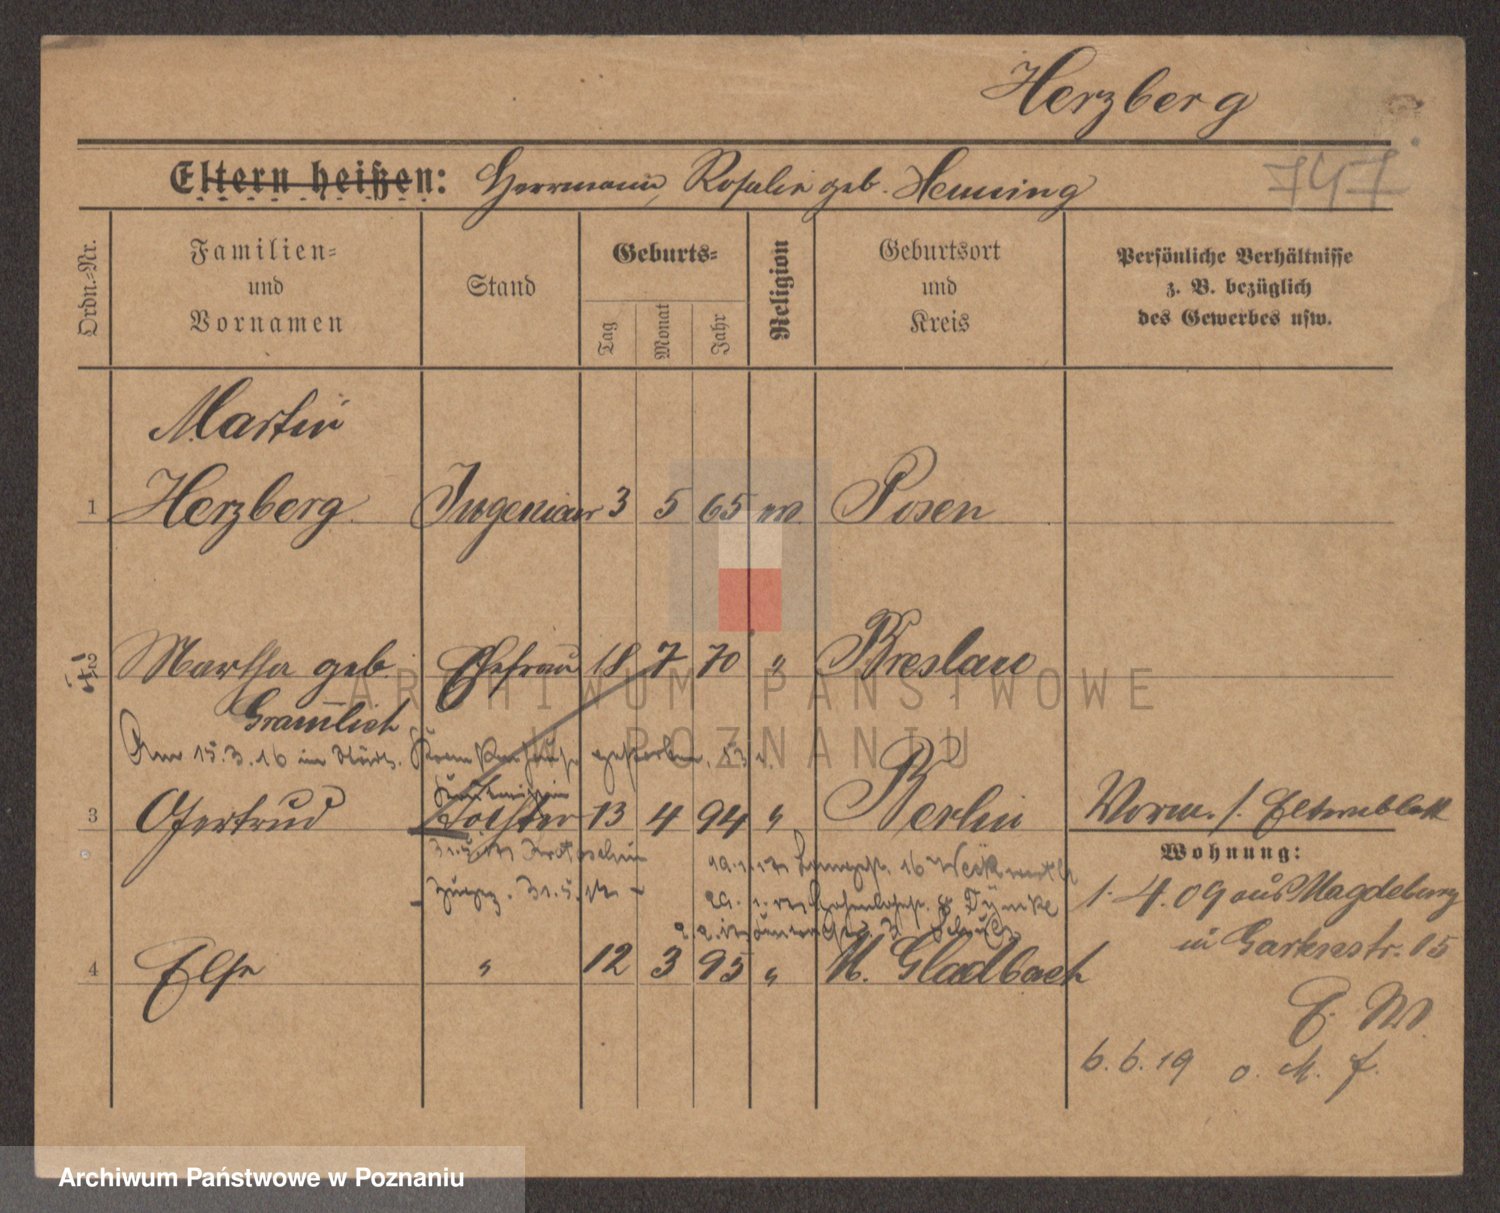 Herzberg
Eltern heißen: Herrmann, Rosalie geb. Henning
747
Ordn.-Nr.
Familien-
und
Vornamen
Stand
Geburts-
Tag
Monat
Jahr
Religion
Geburtsort
und
Kreis
Persönliche Verhältnisse
z. B. bezüglich
des Gewerbes usw.
Martin
1 Herzberg Ingenieur 3 5 65 Posen
2 Martha geb. Ehefrau 18 7 70 " Breslau
Gramlich
Am 15.3.16 im gestorben.
3 Gertrud Tochter 13 4 94 " Berlin
Worm. s. Elternblatt
Wohnung:
1.4.09 aus Magdeburg
in Gartenstr. 15
4 Else " 12 3 95 " M. Gladbach
E. W.
6.6.19 o. M. f.
ARCHIWUM PAŃSTWOWE
W POZNANIU
Archiwum Państwowe w Poznaniu